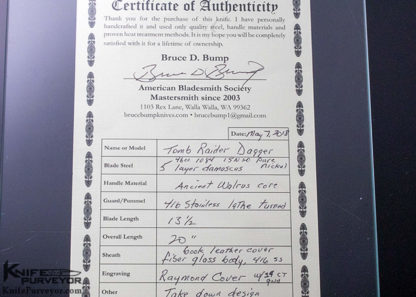 Certificate of Authenticity
Thank you for the purchase of this knife. I have personally
handcrafted it and used only quality steel, handle materials and
proven heat treatment methods. It is my hope you will be completely
satisfied with it for a lifetime of ownership.
Bruce D. Bump
Bruce D Bump
American Bladesmith Society
Mastersmith since 2003
1103 Rex Lane, Walla Walla, WA 99362
brucebumpknives.com • brucebump1@gmail.com
Date: May 7, 2018
Name or Model Tomb Raider Dagger
Blade Steel 5 layer damascus 1084 15N20 Pure Nickel
Handle Material Ancient Walrus core
Guard/Pommel 416 Stainless lathe turned
Blade Length 13½
Overall Length 20"
Sheath book leather cover
fiber glass body, 416 SS
Engraving Raymond Cover w/24 CT gold
Other Take down design
KNIFE PURVEYOR
KnifePurveyor.com